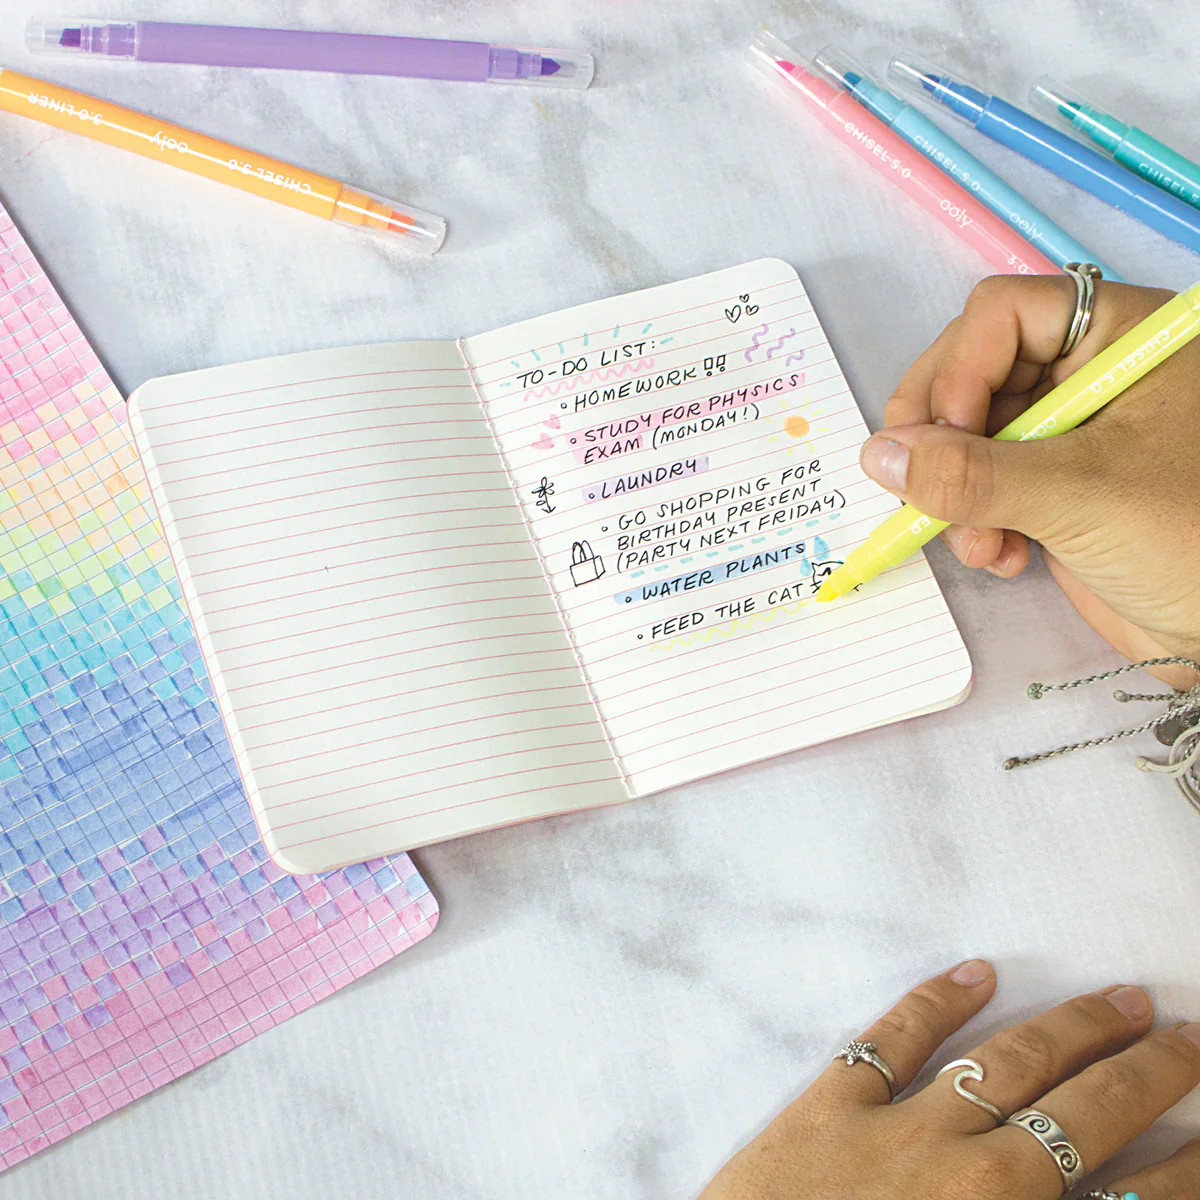 3.0 LINER ooly CHISEL 5.0
CHISEL 5.0 ooly 3.0
CHISEL 5.0 ooly
CHISEL 5
TO-DO LIST:
° HOMEWORK!!
° STUDY FOR PHYSICS
EXAM (MONDAY!)
° LAUNDRY
° GO SHOPPING FOR
BIRTHDAY PRESENT
(PARTY NEXT FRIDAY)
° WATER PLANTS
° FEED THE CAT
CHISEL 5.0